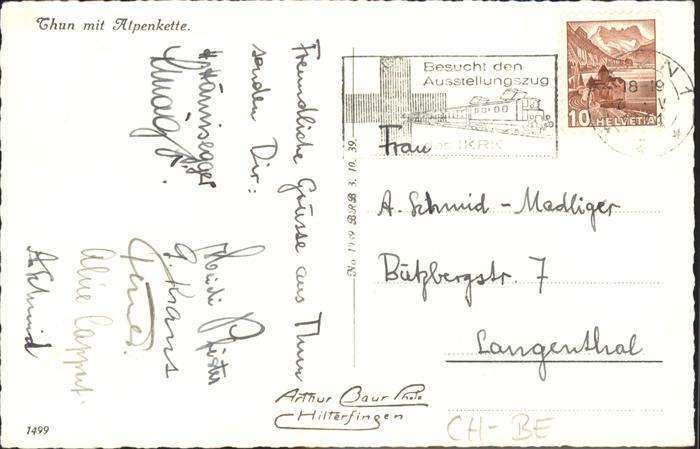 Thun mit Alpenkette.
Freundliche Grüsse aus Thun
senden Dir:
Heidi Pfister
G. Krans
Alice
A. Schmid
No 1499 BRB 3. 10. 39.
Besucht den
Ausstellungszug
IKRK
18-19
10 HELVETIA
Frau
A. Schmid-Madliger
Bützbergstr. 7
Langenthal
Arthur Baur Photo
Hilterfingen
CH-BE
1499